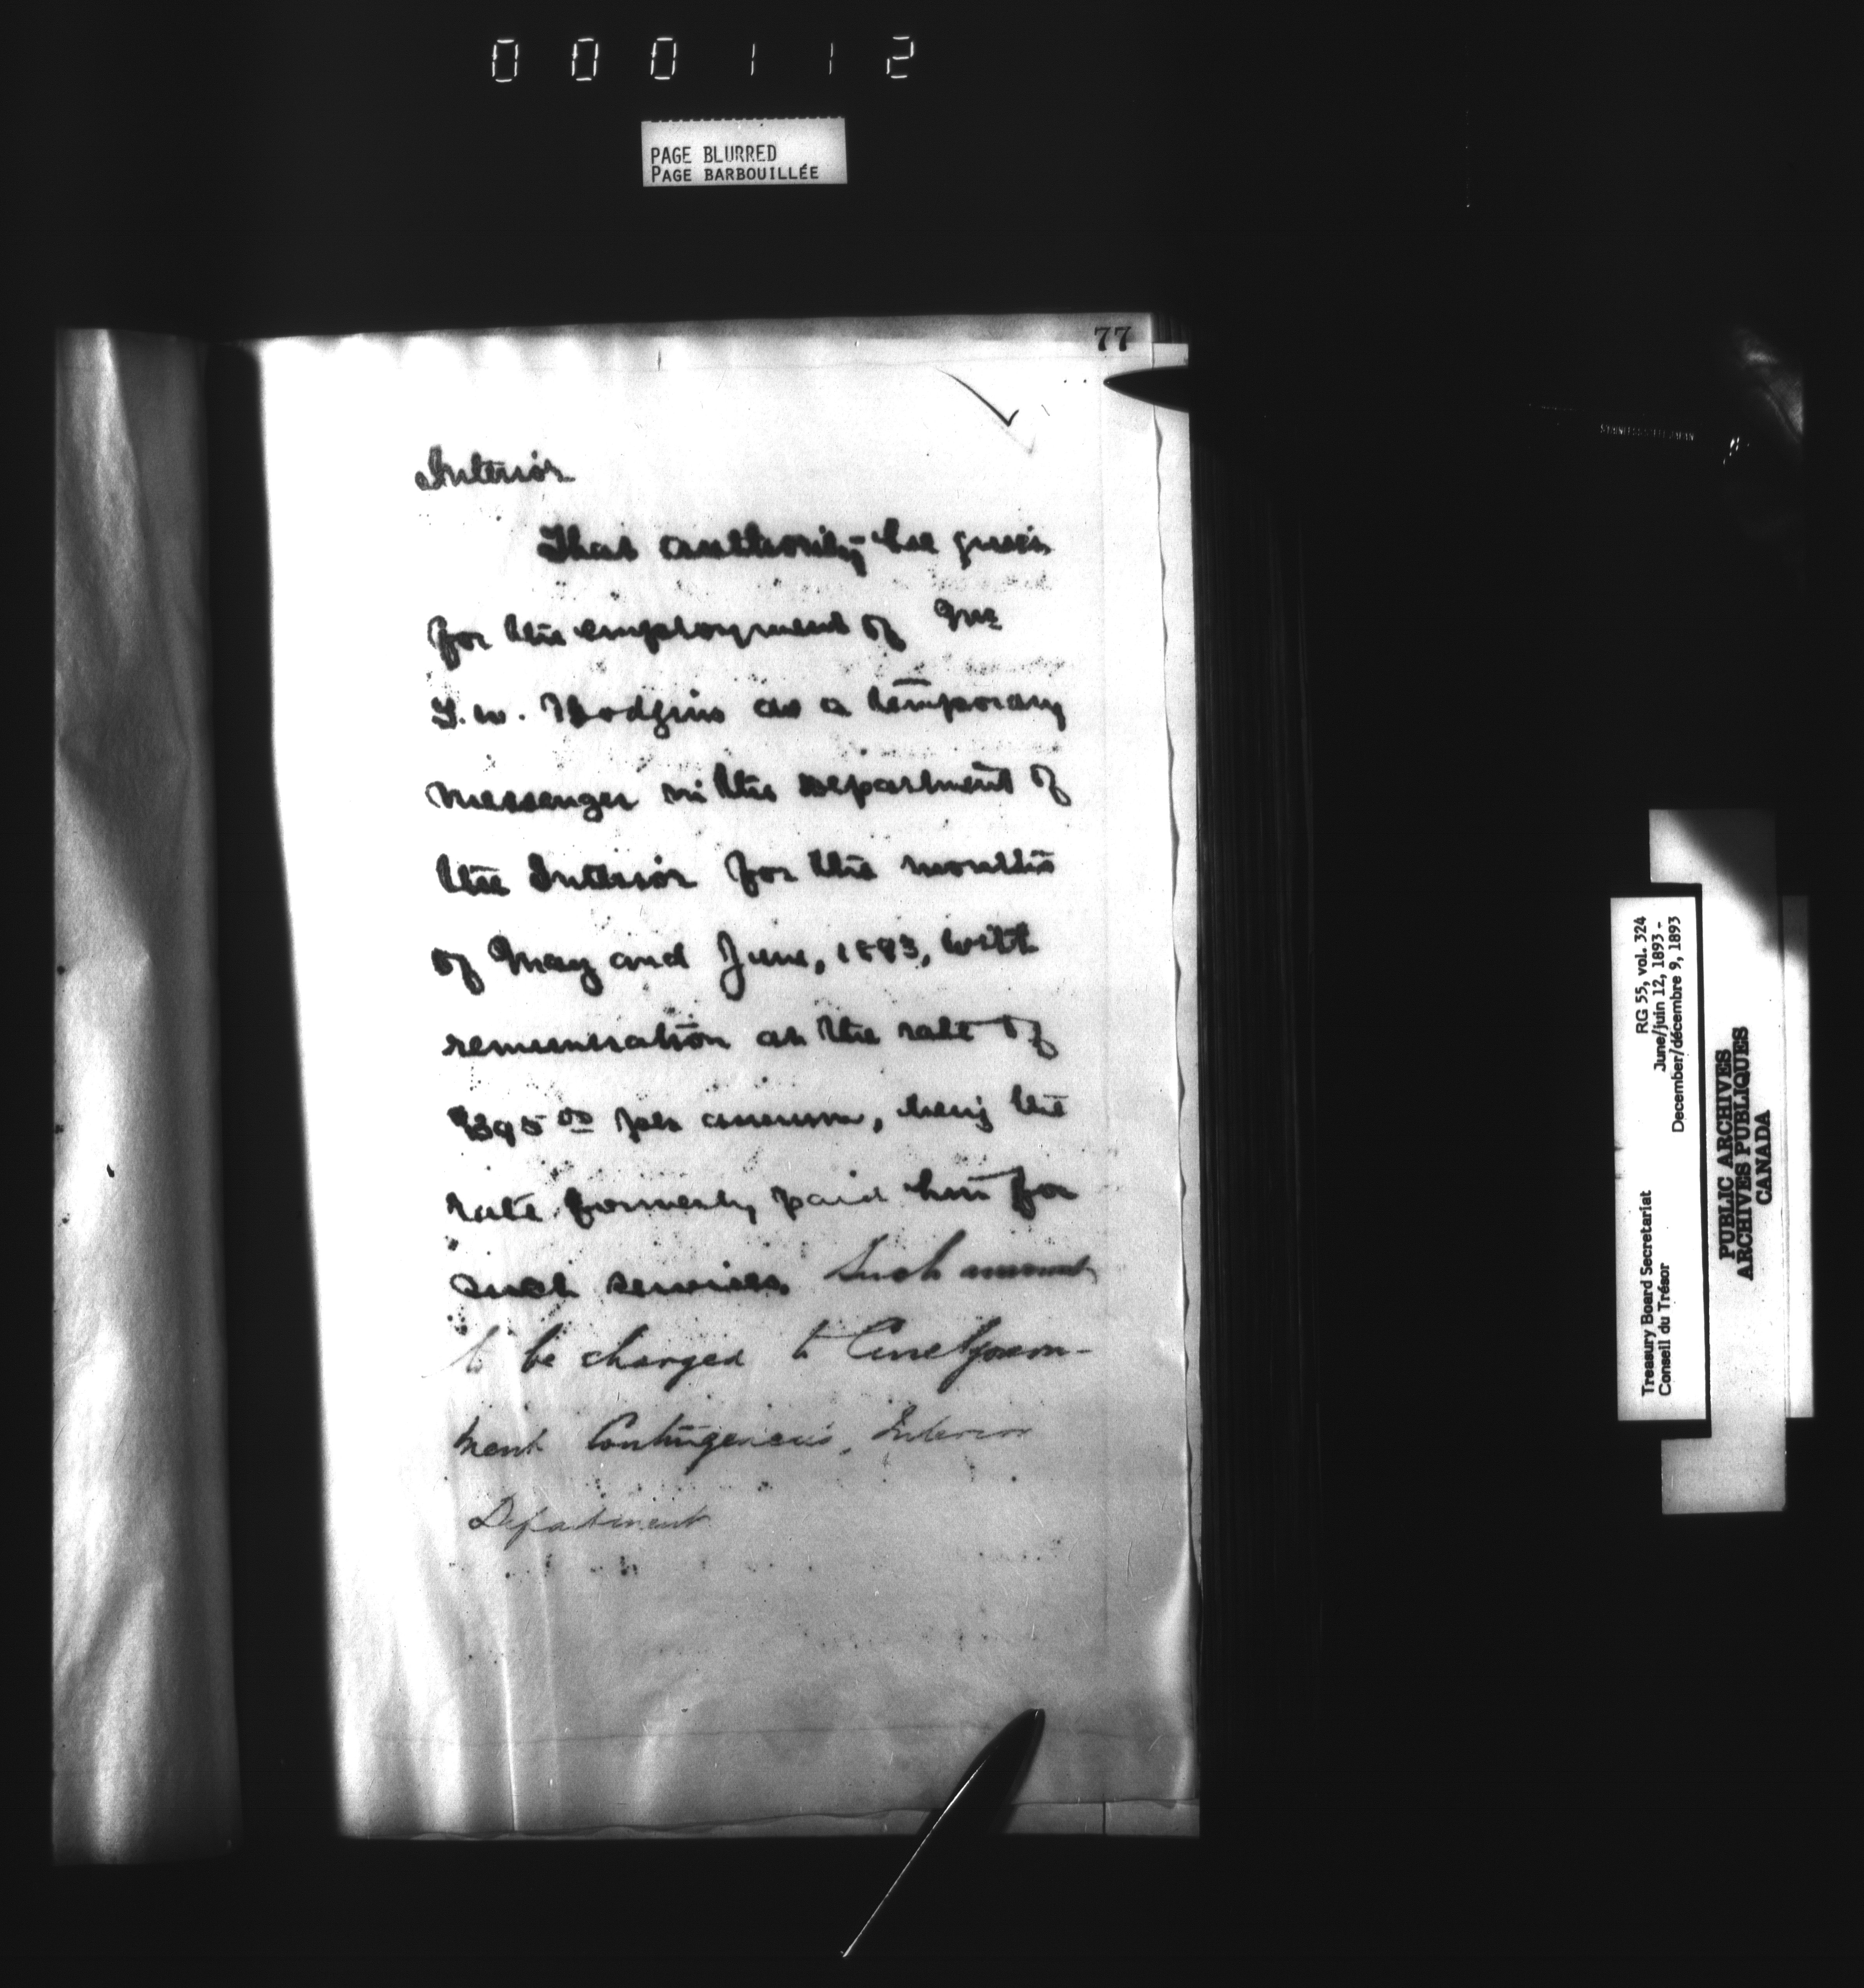 000112
PAGE BLURRED
PAGE BARBOUILLÉE
77
Interior
That authority be given
for the employment of Mr
T. W. Hodgins as a temporary
messenger in the Department of
the Interior for the months
of May and June, 1893, with
remuneration at the rate of
$395 00 per annum, being the
rate formerly paid him for
such services. Such amount
to be charged to Civil Govern-
ment Contingencies, Interior
Department
RG 55, vol. 324
June/juin 12, 1893 -
December/décembre 9, 1893
Treasury Board Secretariat
Conseil du Trésor
PUBLIC ARCHIVES
ARCHIVES PUBLIQUES
CANADA